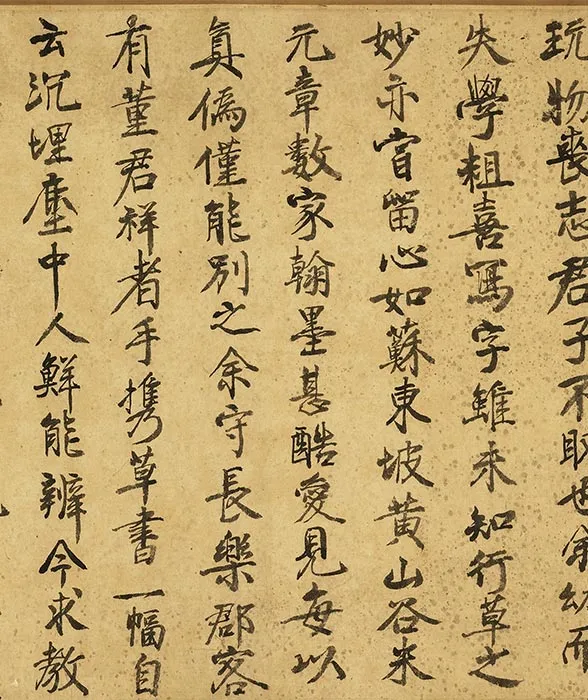 玩物喪志君子不取也幼而
失學粗喜寫字雖未知行草之
妙亦嘗留心如蘇東坡黄山谷米
元章數家翰墨甚酷愛見每以
真僞僅能別之余守長樂郡客
有董君祥者手携草書一幅自
云沉埋塵中人鮮能辨今求教